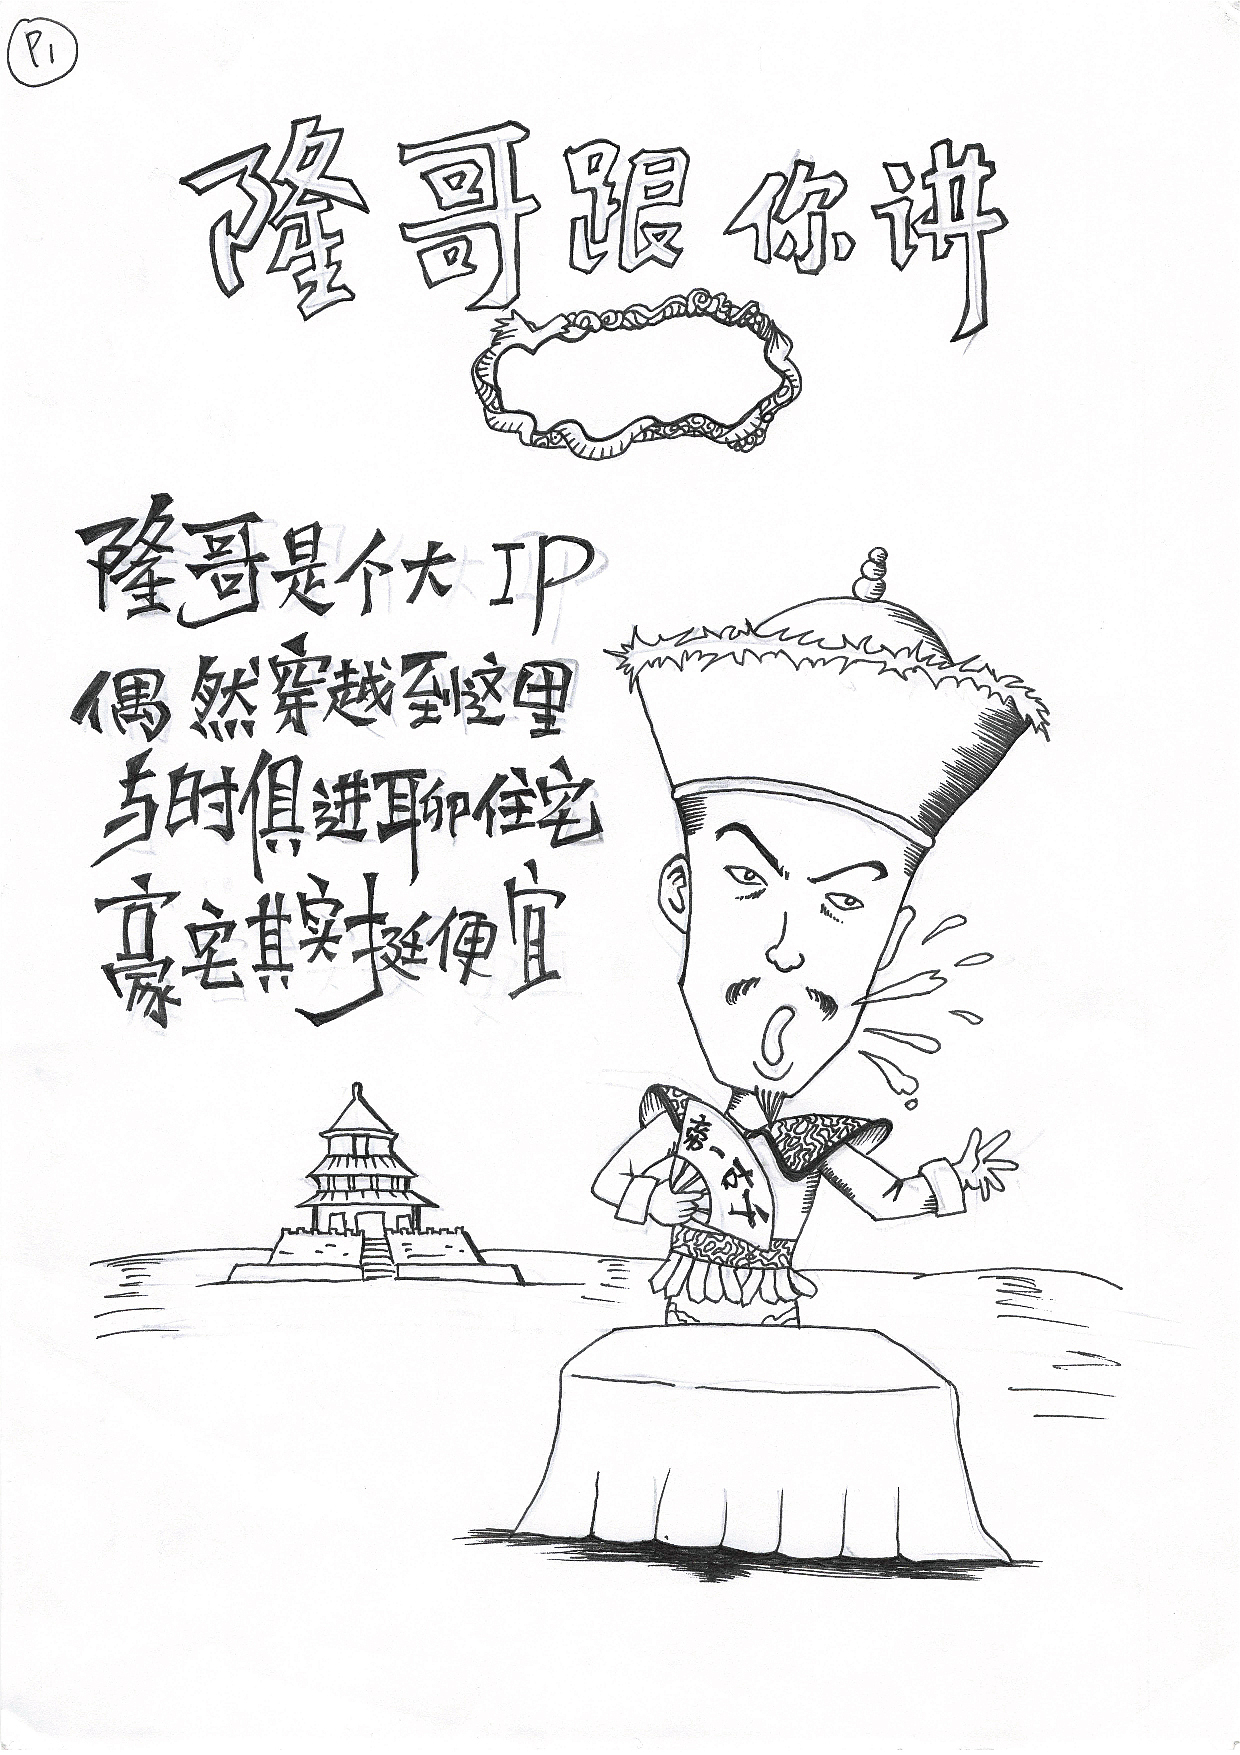 P1
隆哥跟你讲
隆哥是个大IP
偶然穿越到这里
与时俱进聊住宅
豪宅其实挺便宜
千古一帝